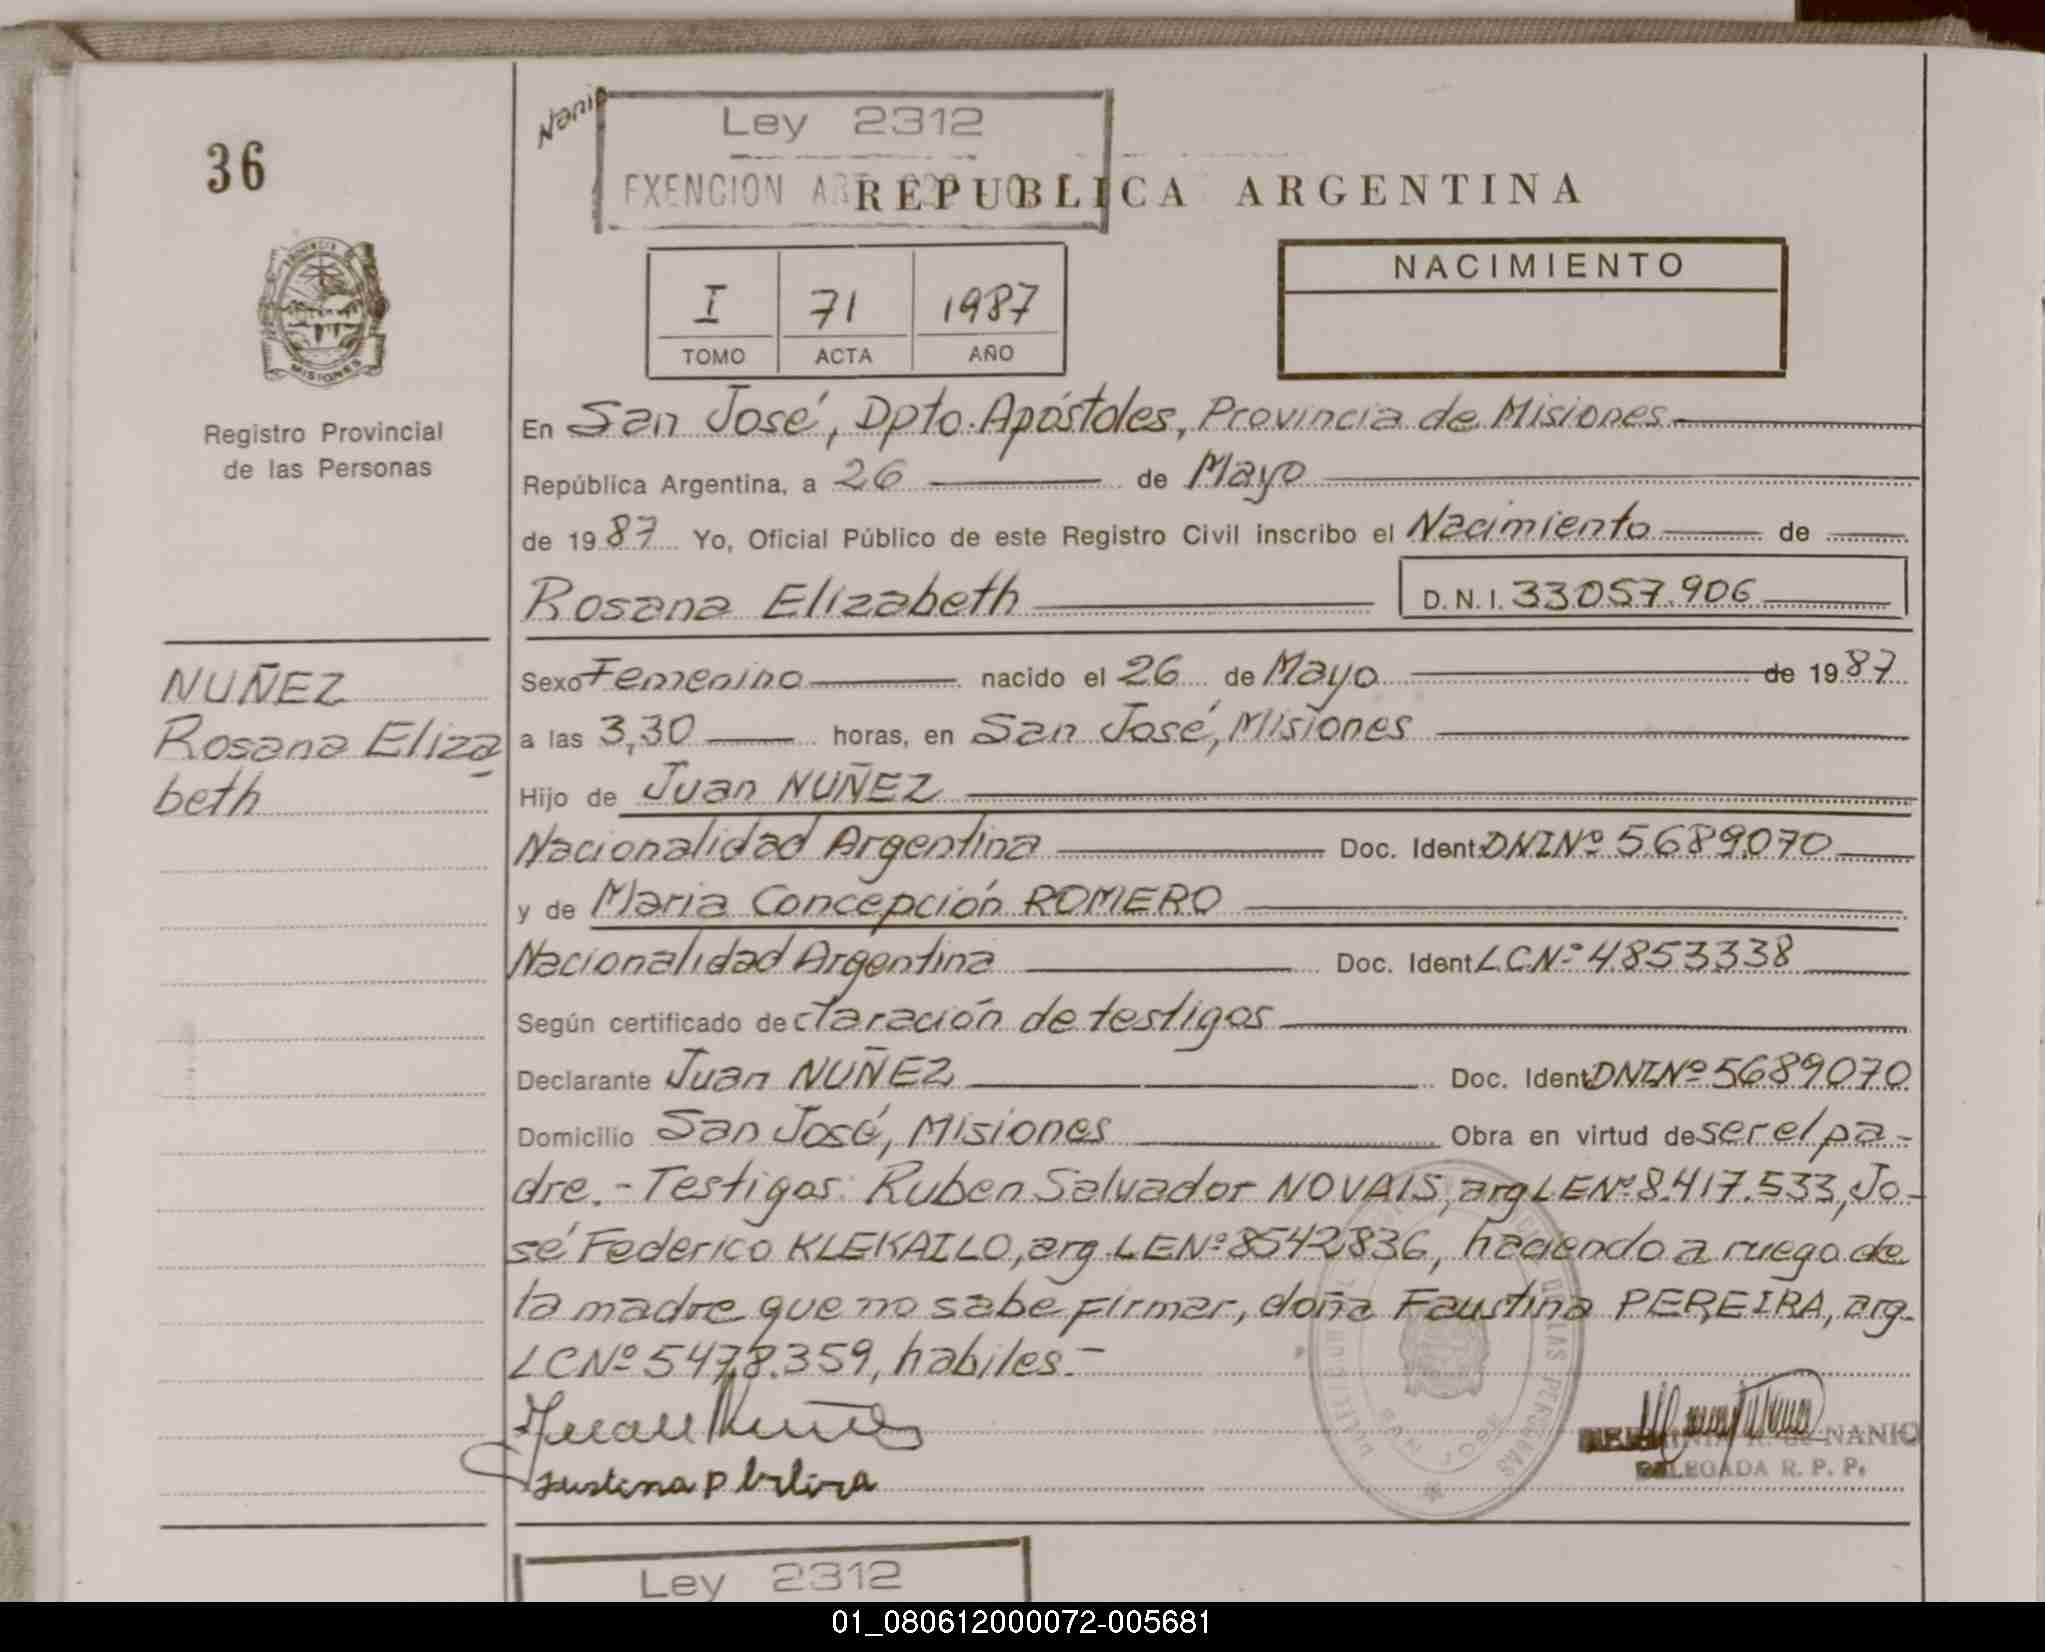 36
Nanio
Ley 2312
EXENCION
REPUBLICA ARGENTINA
PROVINCIA
MISIONES
Registro Provincial
de las Personas
I 71 1987
TOMO ACTA AÑO
NACIMIENTO
En San José, Dpto. Apóstoles, Provincia de Misiones
República Argentina, a 26 de Mayo
de 1987 Yo, Oficial Público de este Registro Civil inscribo el Nacimiento de
Rosana Elizabeth D.N.I. 33.057.906
NUÑEZ
Rosana Eliza
beth
Sexo Femenino nacido el 26 de Mayo de 1987
a las 3,30 horas, en San José, Misiones
Hijo de Juan NUÑEZ
Nacionalidad Argentina Doc. Ident. DNI Nº 5.689.070
y de Maria Concepción ROMERO
Nacionalidad Argentina Doc. Ident. LC.Nº 4853338
Según certificado declaración de testigos
Declarante Juan NUÑEZ Doc. Ident. DNI.Nº 5689070
Domicilio San José, Misiones Obra en virtud de ser el pa-
dre.- Testigos: Ruben Salvador NOVAIS, arg LENº 8.417.533, Jo-
sé Federico KLEKAILO, arg. LENº 8542836, haciendo a ruego de
la madre que no sabe firmar, doña Faustina PEREIRA, arg.
LCNº 5478.359, habiles.-
Juan Nuñez
NANIO
DELEGADA R. P. P.
Ley 2312
01_080612000072-005681